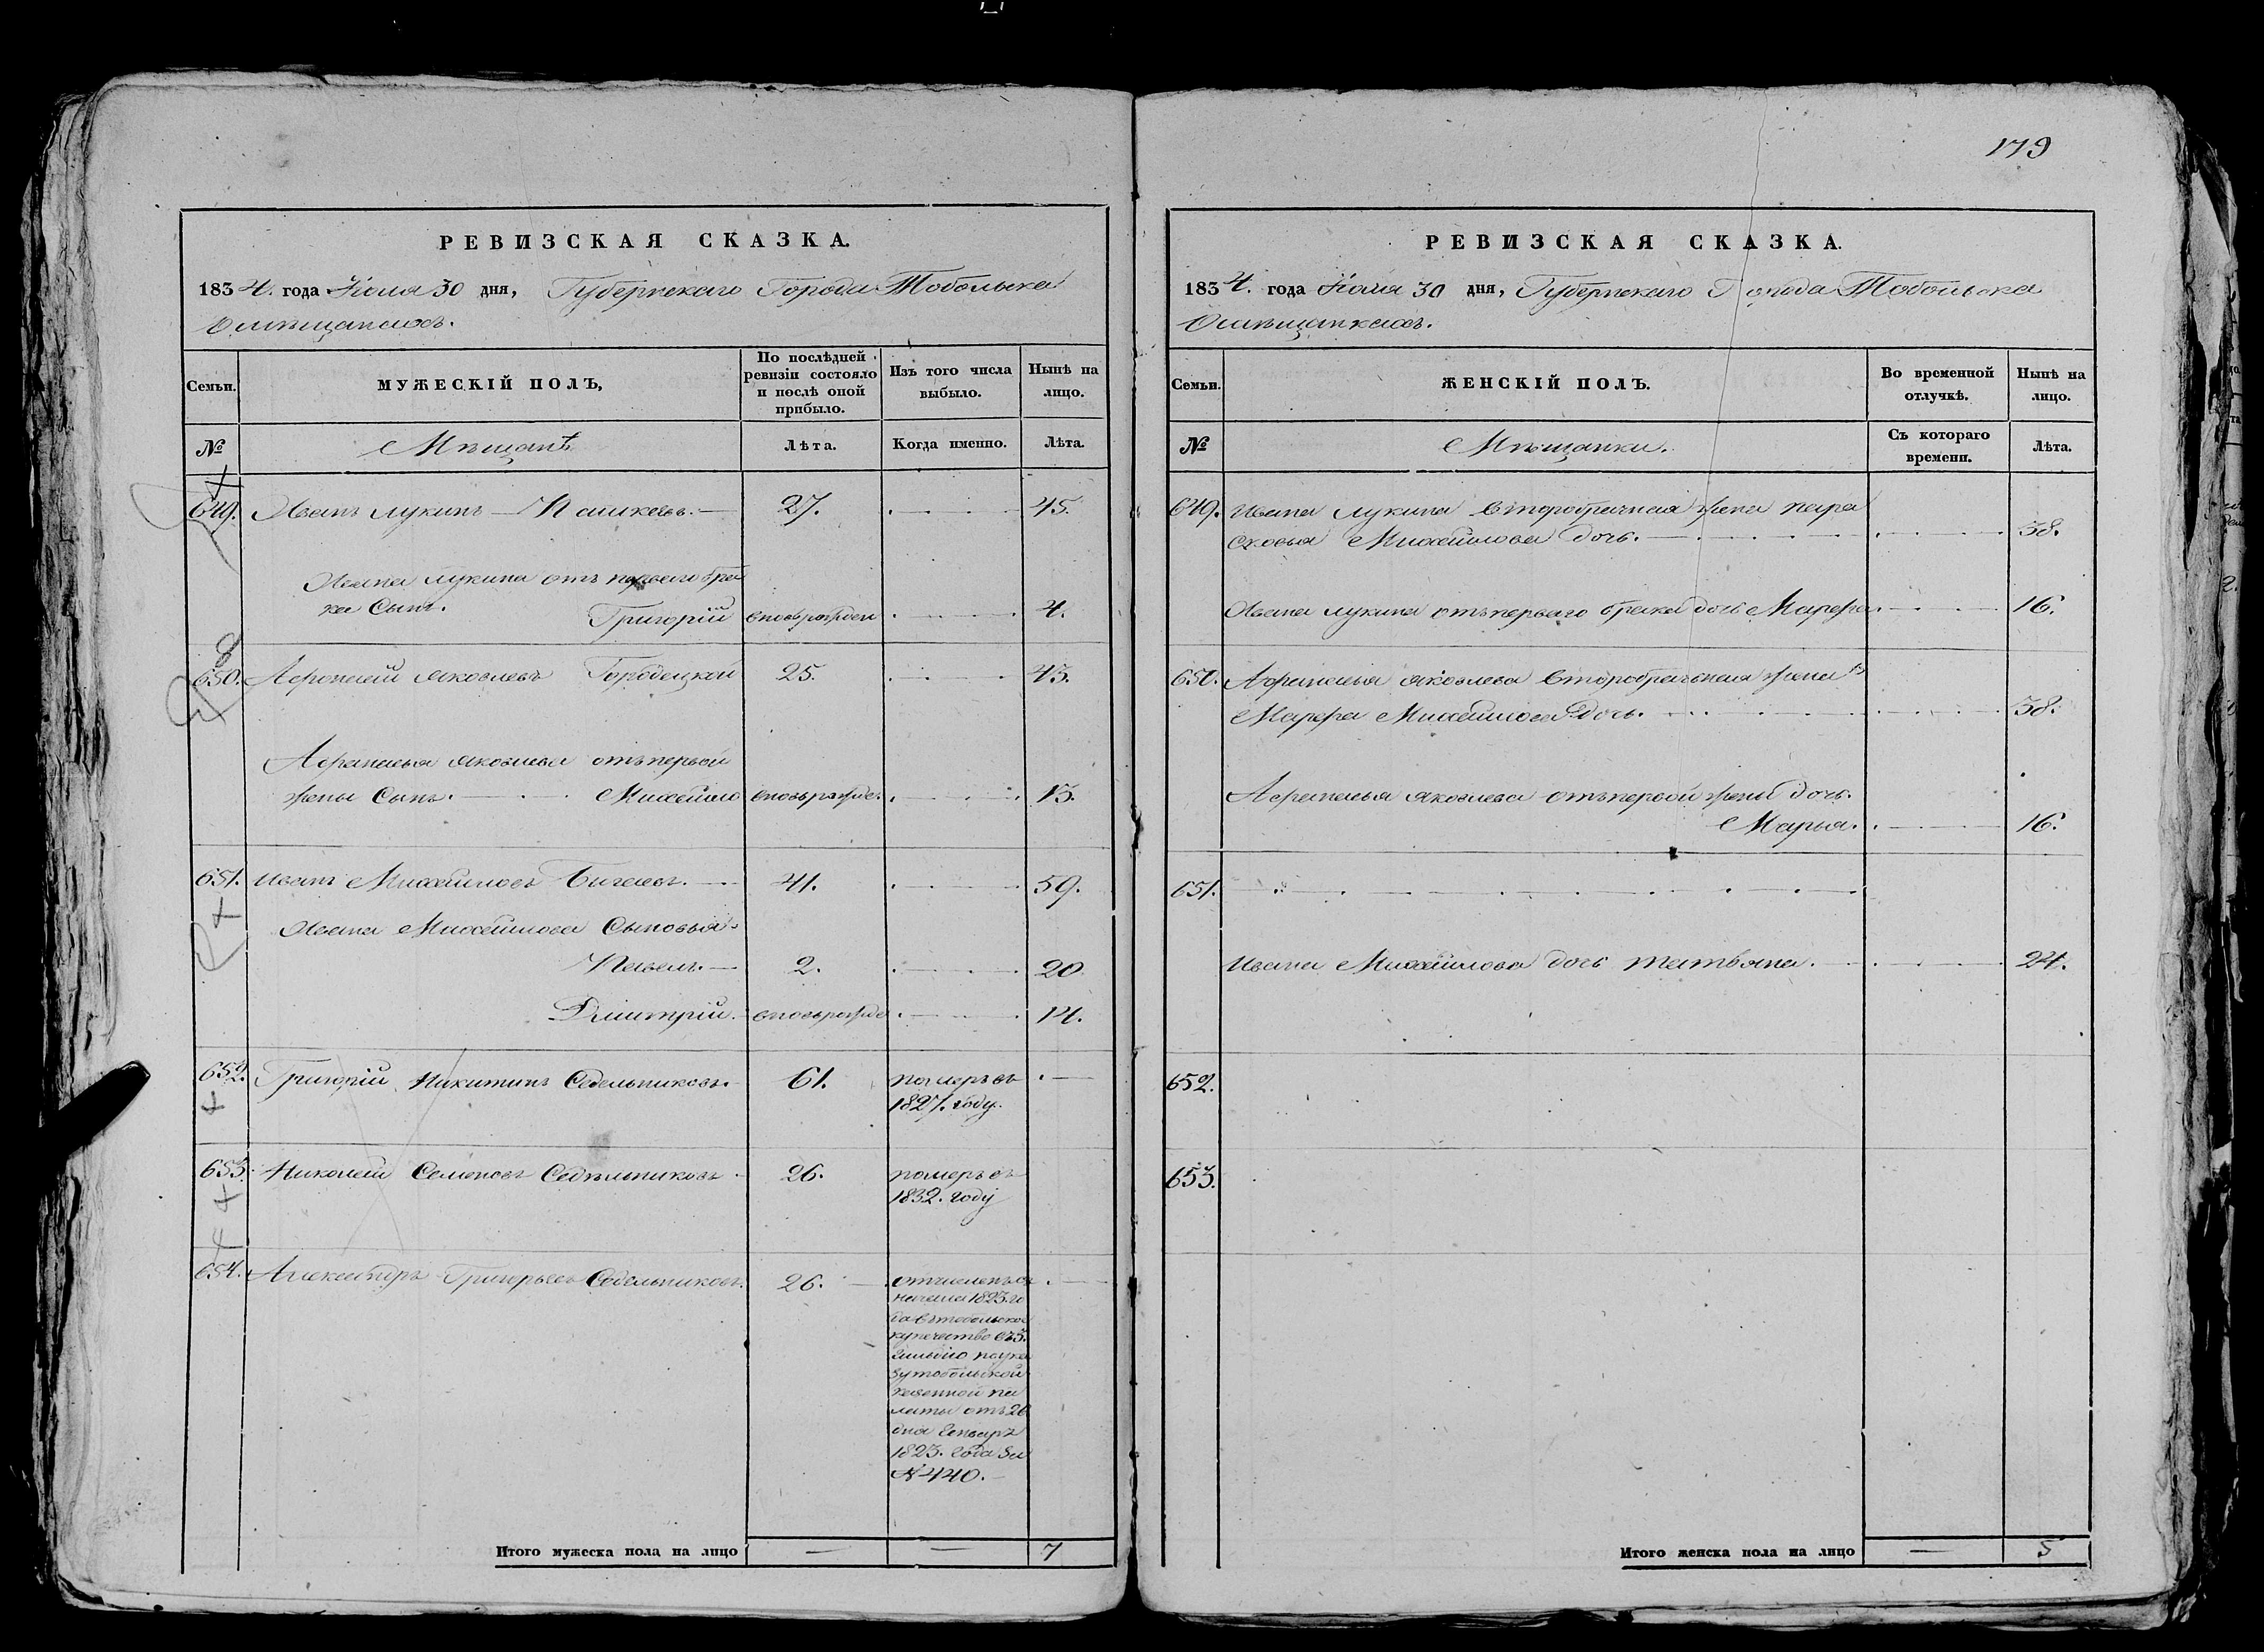 179
РЕВИЗСКАЯ СКАЗКА.
1834. года Июля 30 дня, Губернскаго Города Тобольска
О мѣщанахъ.
Семьи.
МУЖЕСКІЙ ПОЛЪ,
По послѣдней
ревизіи состояло
и послѣ оной
прибыло.
Изъ того числа
выбыло.
Нынѣ на
лицо.
№
Мѣщанѣ
Лѣта.
Когда именно.
Лѣта.
649. Иванъ Лукинъ — — 27. 45.
Ивана Лукина отъ перваго бра
ка Сынъ.
Григорій вновь рожден 4.
650. Афонасей Яковлевъ Городецкой 25. 43.
Афанасья Яковлева отъ первой
жены Сынъ. Михайло вновь рожде. 13.
651. Иванъ Михайловъ 41. 59.
Ивана Михайлова Сыновья
Павелъ. — 2. 20
Дмитрій. вновь рожде 14.
652. Григорій Никитинъ Седельниковъ. 61. померъ въ
1827. году.
653. Николай Семеновъ Седѣльниковъ 26. померъ въ
1832. году
654. Александръ Григорьевъ Седельниковъ. 26. отчисленъ съ
начала 1823. го
да въ тобольское
купечество въ 3.
гильдію по ука
зу тобольской
казенной па
латы отъ 26
дня Генваря
1823. года за
№ 440.
Итого мужеска пола на лицо — — 7
РЕВИЗСКАЯ СКАЗКА.
1834. года Июля 30 дня, Губернскаго Города Тобольска
О мѣщанкахъ.
Семьи.
ЖЕНСКІЙ ПОЛЪ.
Во временной
отлучкѣ.
Нынѣ на
лицо.
№
Мѣщанки.
Съ котораго
времени.
Лѣта.
649. Ивана Лукина второбрачная жена Пара
сковья Михайлова дочь. 38.
Ивана Лукина отъ перваго брака дочь Марфа 16.
650. Афанасья Яковлева второбрачьная жена
Марфа Михайлова дочь. 38.
Афанасья Яковлева отъ первой жены дочь.
Марья. 16.
651.
Ивана Михайлова дочь татьяна. 24.
652.
653.
Итого женска пола на лицо — 5